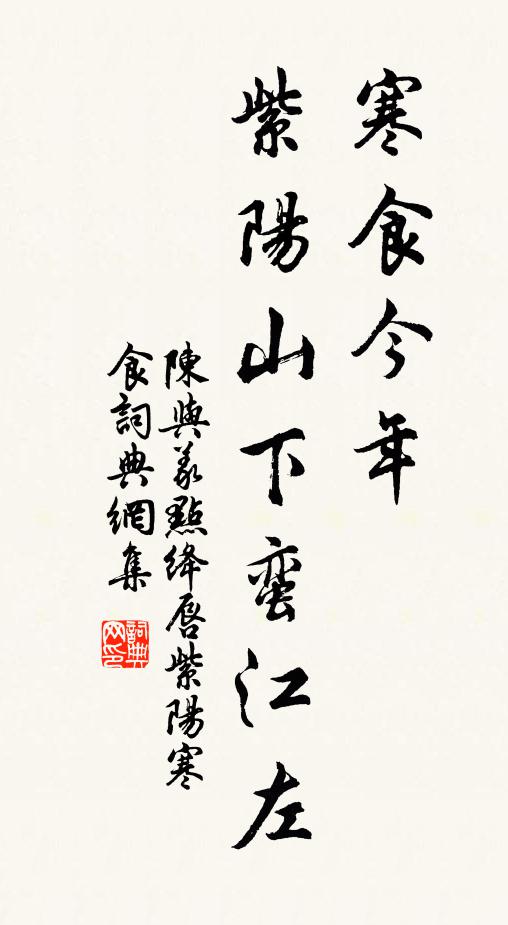 寒食今年
紫陽山下蛮江左
陳與義點絳唇紫陽寒
食詞典網集
詞典
网印